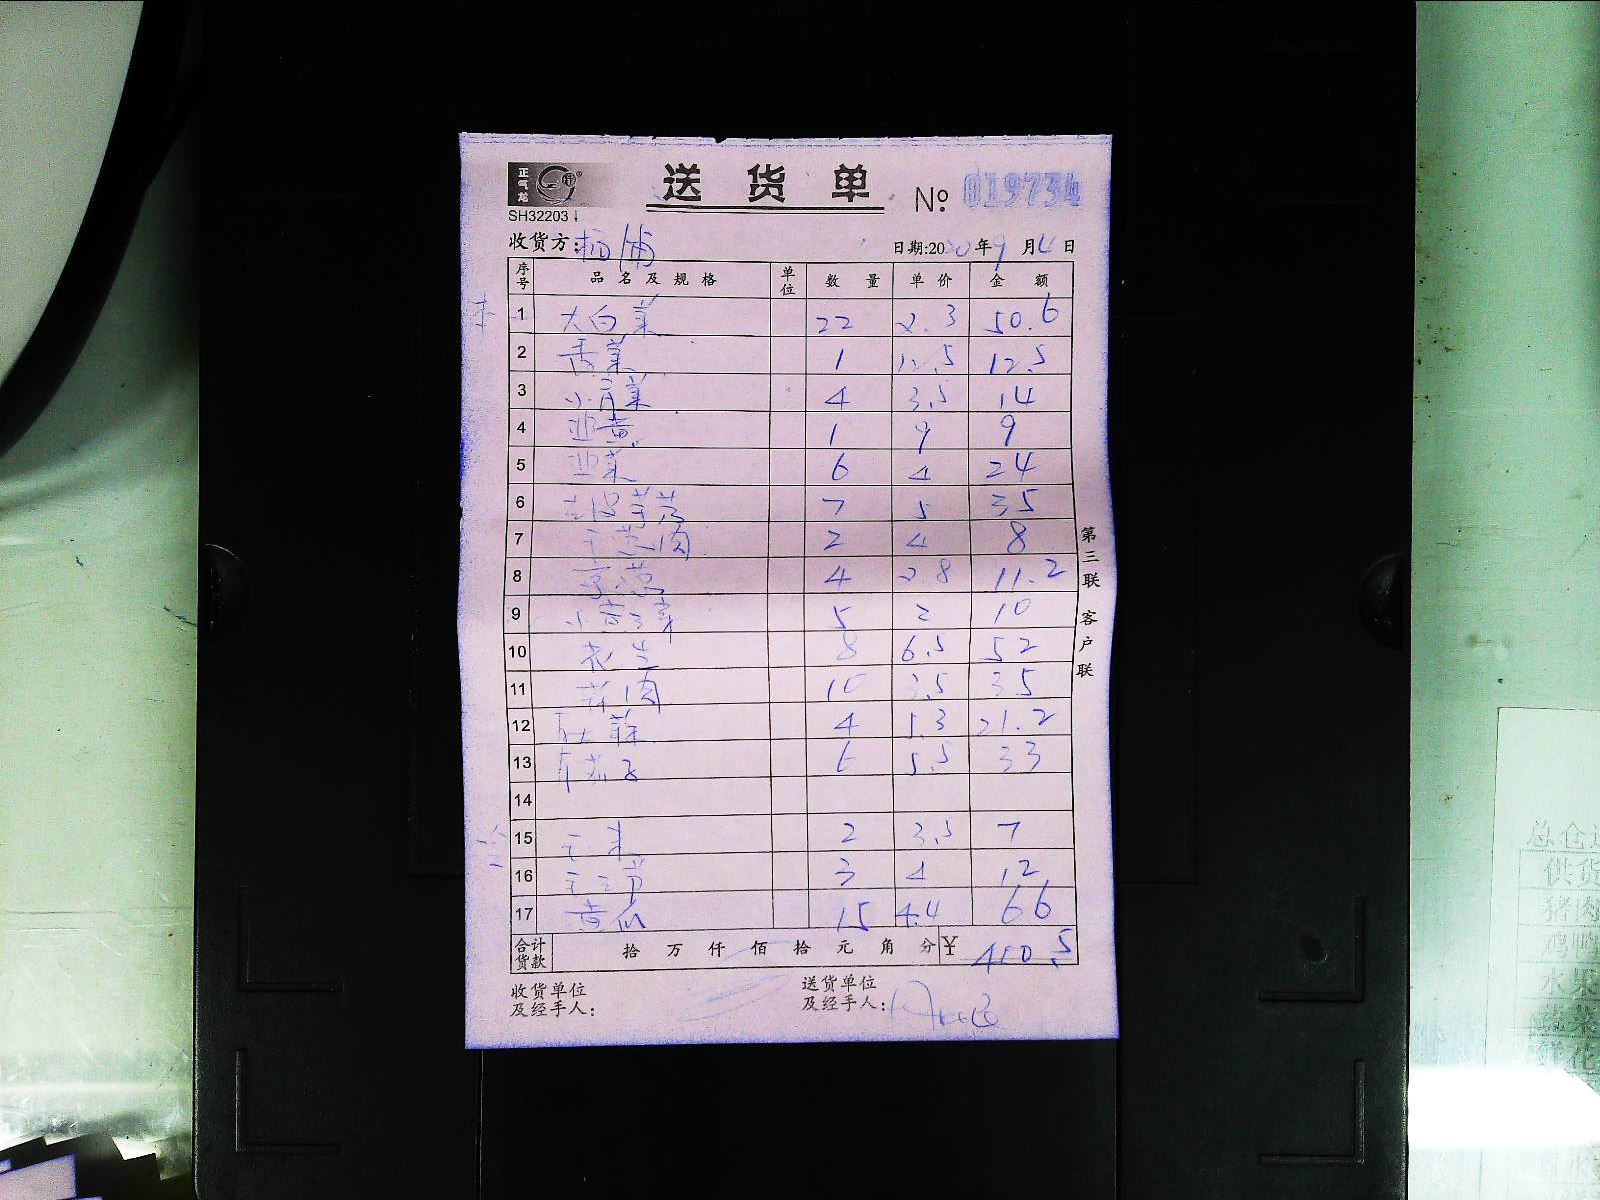 正气龙
送货单 № 019734
SH32203
收货方: 杨浦 日期:2020年9月4日
序号 品名及规格 单位 数量 单价 金额
1 大白菜 22 2.3 50.6
2 香菜 1 12.5 12.5
3 小青菜 4 3.5 14
4 韭黄 1 9 9
5 韭菜 6 4 24
6 7 5 35
7 2 4 8
8 4 2.8 11.2
9 5 2 10
10 花生 8 6.5 52
11 10 3.5 35
12 4 5.3 21.2
13 6 5.5 33
14
15 玉米 2 3.5 7
16 3 4 12
17 黄瓜 15 4.4 66
合计货款 拾万仟佰拾元角分 ¥ 410.5
收货单位及经手人:
送货单位及经手人:
第三联 客户联
总仓
供货
猪肉
鸡鸭
水果
蔬菜
鲜花